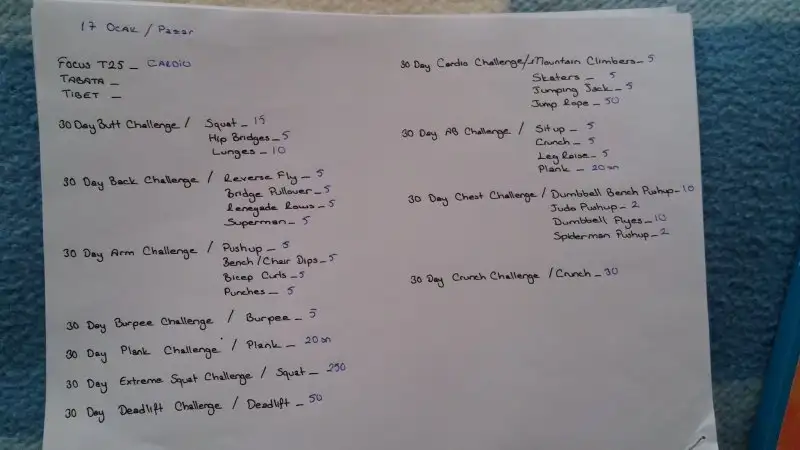 17 OCAK / Pazar
FOCUS T25 _ CARDIO
TABATA _
TIBET _
30 Day Butt Challenge / Squat _ 15
Hip Bridges _ 5
Lunges _ 10
30 Day Back Challenge / Reverse Fly _ 5
Bridge Pullover _ 5
Renegade Rows _ 5
Superman _ 5
30 Day Arm Challenge / Pushup _ 5
Bench / Chair Dips _ 5
Bicep Curls _ 5
Punches _ 5
30 Day Burpee Challenge / Burpee _ 5
30 Day Plank Challenge / Plank _ 20 sn
30 Day Extreme Squat Challenge / Squat _ 250
30 Day Deadlift Challenge / Deadlift _ 50
30 Day Cardio Challenge / Mountain Climbers _ 5
Skaters _ 5
Jumping Jack _ 5
Jump Rope _ 50
30 Day AB Challenge / Situp _ 5
Crunch _ 5
Leg Raise _ 5
Plank _ 20 sn
30 Day Chest Challenge / Dumbbell Bench Pushup _ 10
Judo Pushup _ 2
Dumbbell Flyes _ 10
Spiderman Pushup _ 2
30 Day Crunch Challenge / Crunch _ 30